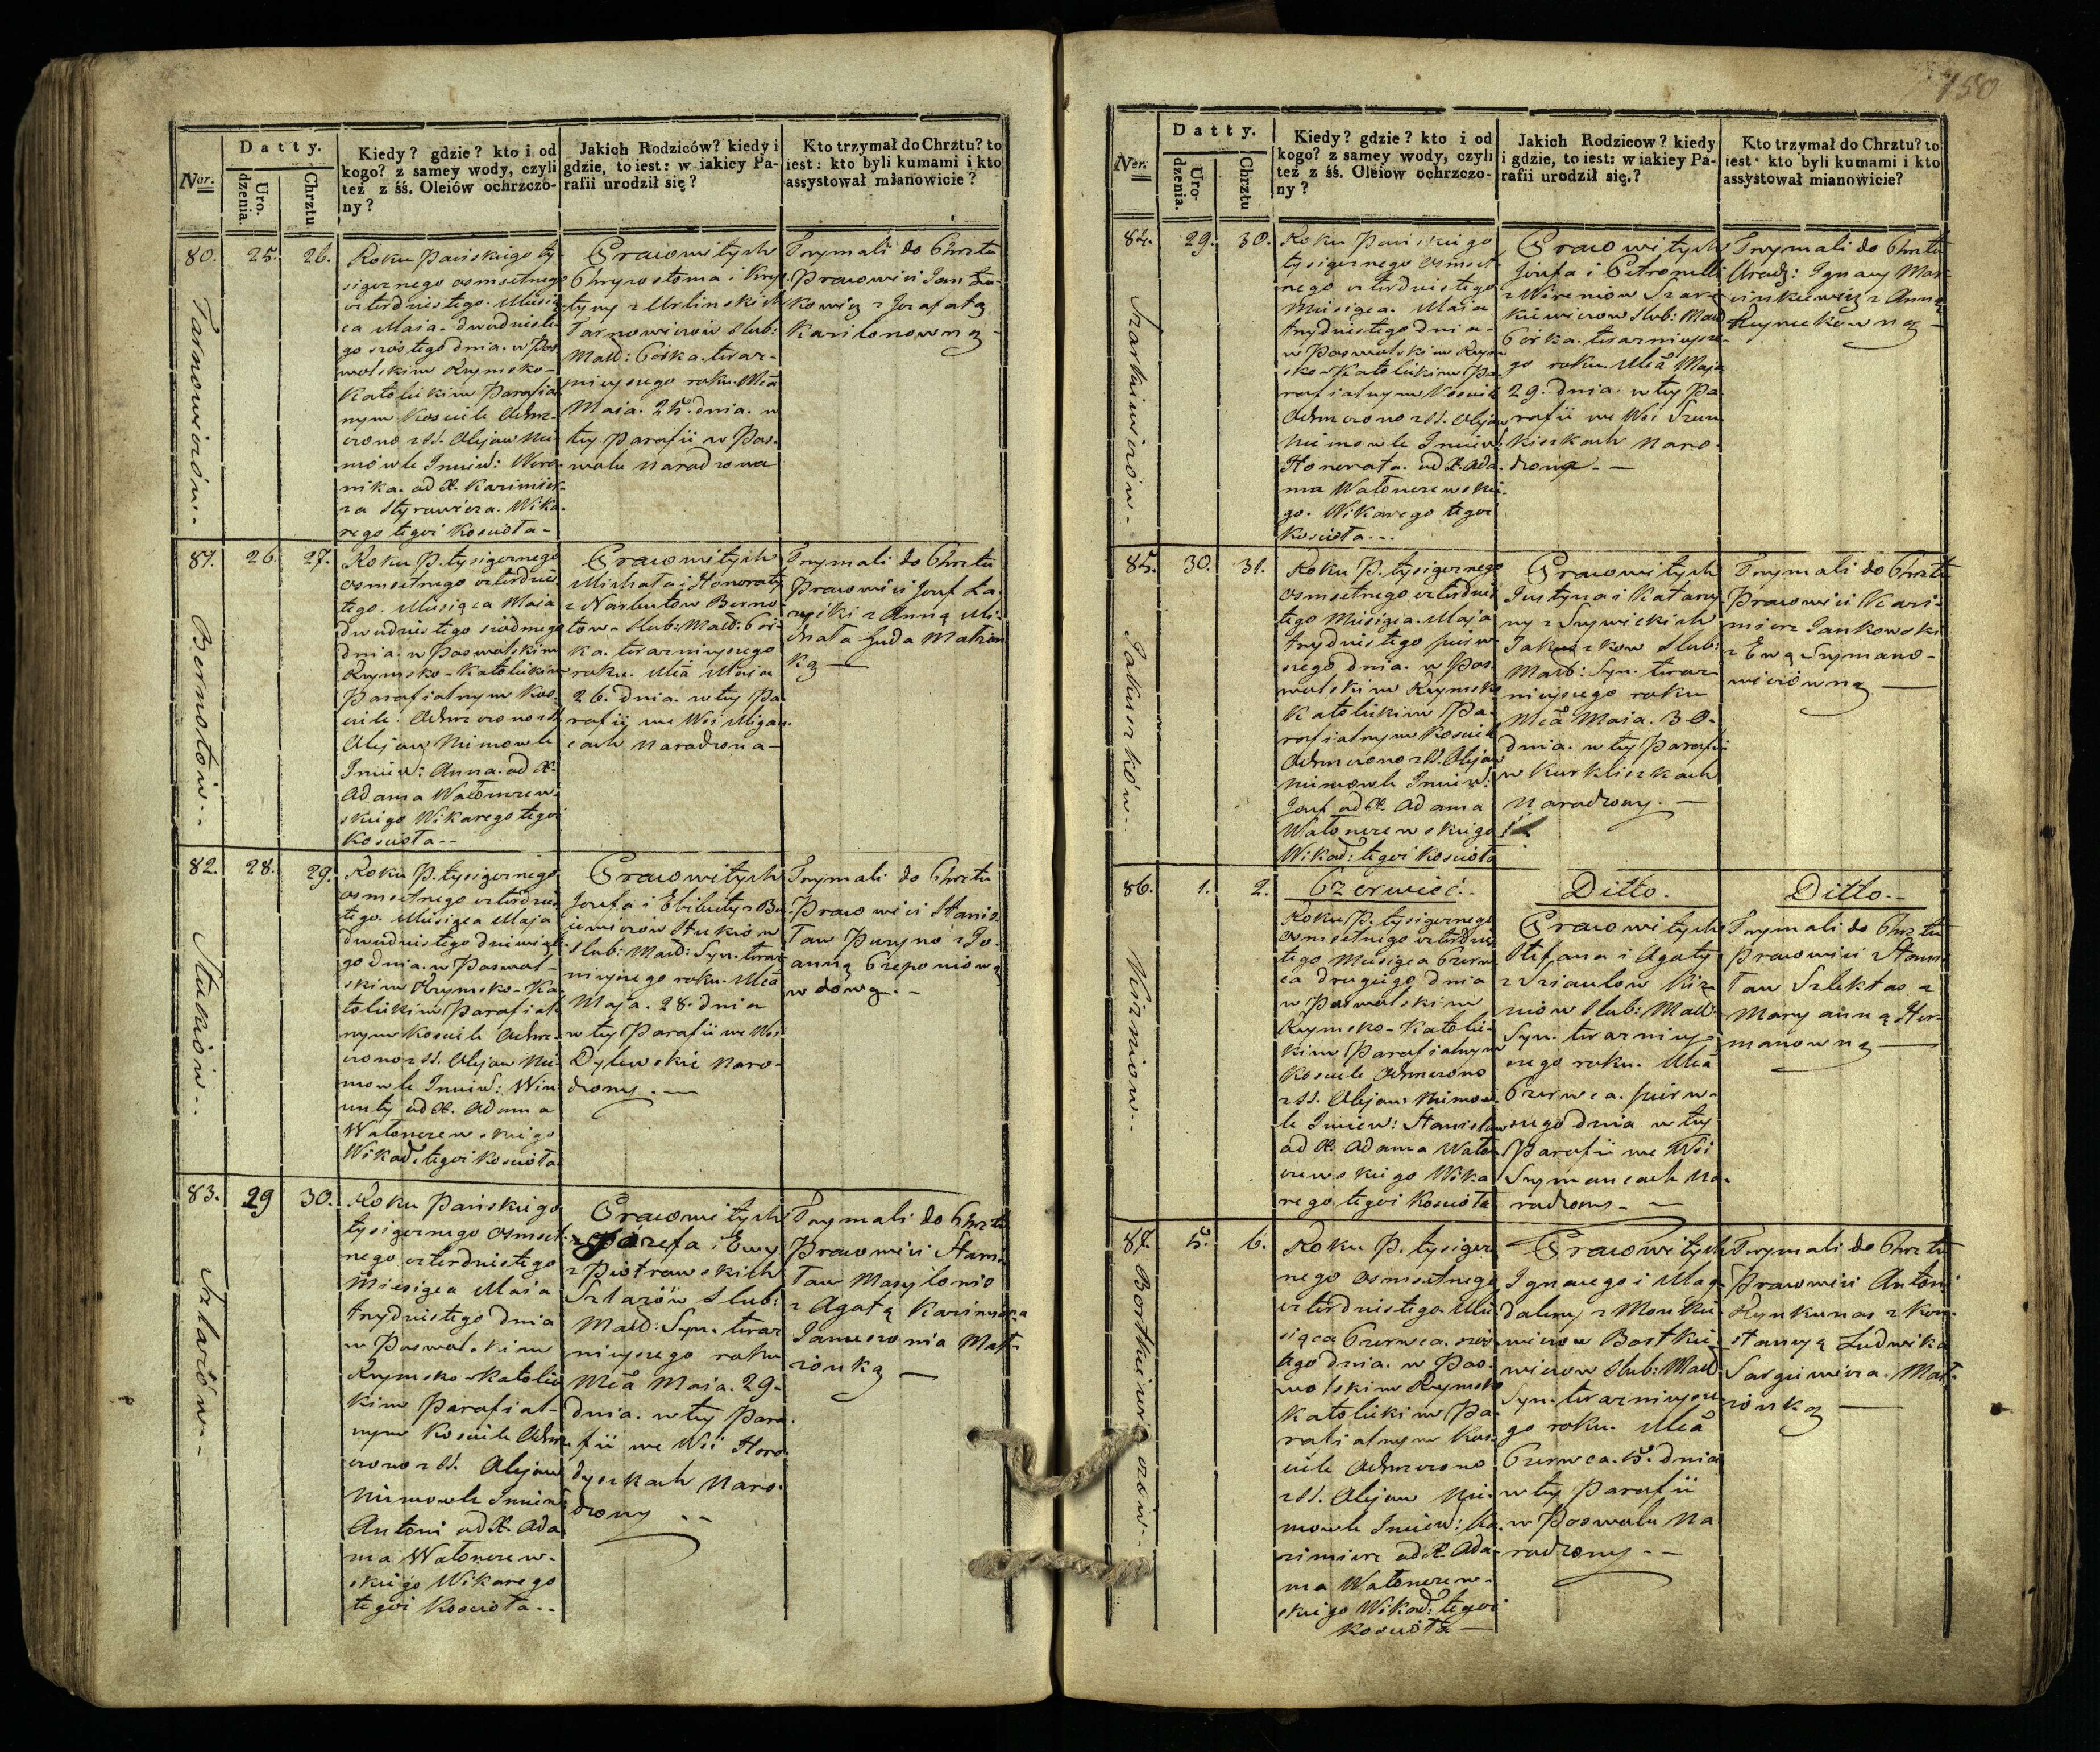 150
Datty.
Kiedy? gdzie? kto i od
kogo? z samey wody, czyli
też z śś. Oleiów ochrzczo-
ny?
Jakich Rodziców? kiedy i
gdzie, to iest: w iakiey Pa-
rafii urodził się?
Kto trzymał do Chrztu? to
iest: kto byli kumami i kto
assystował mianowicie?
Ner.
Uro-
dzenia.
Chrztu
80.
25.
26.
Tarnowiczów.
Roku Pańskiego ty-
sigcznego osmsetnego
czterdziestego. Miesią-
ca Maia. dwudzieste-
go szóstego dnia. w Pos-
wolskim Rzymsko-
Katolickim Parafial-
nym Kosciele Ochrz-
czono z SS. Olejow Nie-
mowle Imien: Wero-
nika. od X. Kazimie-
rza Styrewicza. Wika-
rego tegoż Koscioła-
Pracowitych
Chryzostoma i Krys-
tyny z Urlinskich
Tarnowiczow Slub:
Małż: Córka. teraz-
nieyszego roku Mcã
Maia. 25. dnia. w
tey Parafii w Pos-
wolu Narodzona
Trzymali do Chrztu
Pracowici Jan
z Jozafatą
81.
26.
27.
Bernotów..
Roku P. tysigcznego
osmsetnego czterdzies-
tego. Miesiąca Maia
dwudziestego siodmego
dnia. w Poswolskim
Rzymsko-Katolickim
Parafialnym Kos-
ciele. Ochrzczono z SS.
Olejow Niemowle
Imien: Anna. od X.
Adama Watonczew-
skiego Wikarego tegoż
Kosciola--
Pracowitych
Michała i Honoraty
z Narbutow Berno-
tow Slub: Małż: Cór-
ka. teraznieyszego
roku. Mcã Maia
26. dnia. w tey Pa-
rafii we Wsi Migon-
cach Narodzona-
Trzymali do Chrztu
Pracowici Jozef
z Anną Mi-
chała Małżon-
ką —
82.
28.
29.
Stukiów..
Roku P. tysigcznego
osmsetnego czterdzies-
tego. Miesiąca Maja
dwudziestego dziewiąte-
go dnia. w Poswol-
skim Rzymsko-Ka-
tolickim Parafial-
nym Kosciele Ochrz-
czono z SS. Olejow Nie-
mowle Imien: Win-
centy od X. Adama
Watonczewskiego
Wikar: tegoż Kosciola
Pracowitych
Jozefa i Elzbiety z
Stukiow
Slub: Małż: Syn. teraz
nieyszego roku. Mcã
Maja. 28. dnia
w tey Parafii we Wsi
Dylewskie Naro-
dzony. —
Trzymali do Chrztu
Pracowici Stanis-
ław z Jo-
anną
wdową. –
83.
29
30.
Szlazów.-
Roku Pańskiego
tysigcznego osmset-
nego czterdziestego
Miesigca Maia
trzydziestego dnia
w Poswolskim
Rzymsko-Katolic-
kim Parafial-
nym Kosciele Ochrz-
czono z SS. Olejow
Niemowle Imien:
Antoni od X. Ada-
ma Watonczew-
skiego Wikarego
tegoż Kosciola..
Pracowitych
Józefa i Ewy
z Piotrowskich
Szlazów Slub:
Małż: Syn. teraz
nieyszego roku
Mcã Maia. 29.
dnia. w tey Para-
fii we Wsi Horo-
dyszkach Naro-
dzony ..
Trzymali do Chrztu
Pracowici Stanis-
ław Masylonis
z Agatą Kazimierza
Małż-
żonką —
Datty.
Kiedy? gdzie? kto i od
kogo? z samey wody, czyli
też z śś. Oleiow ochrzczo-
ny?
Jakich Rodzicow? kiedy
i gdzie, to iest: w iakiey Pa-
rafii urodził się.?
Kto trzymał do Chrztu? to
iest· kto byli kumami i kto
assystował mianowicie?
Ner.
Uro-
dzenia.
Chrztu
84.
29.
30.
Szarkiewiczów.
Roku Pańskiego
tysigcznego osmset-
nego czterdziestego
Miesigca. Maia
trzydziestego dnia-
w Poswolskim Rzym-
sko-Katolickim Pa-
rafialnym Kosciele
Ochrzczono z SS. Olejow
Niemowle Imien:
Honorata. od X. Ada-
ma Watonczewskie-
go. Wikarego tegoż
Kosciola...
Pracowitych
Józefa i Petronelli
z Wireniow Szar-
kiewiczow Slub: Małż
Córka. teraznieysze-
go roku. Mcã Maja
29. dnia. w tey Pa-
rafii we Wsi
Naro-
dzona. —
Trzymali do Chrztu
Urodz: Ignacy Mar-
cinkiewicz z Anną
85.
30.
31.
Jakuszków.
Roku P. tysigcznego
osmsetnego czterdzies-
tego Miesigca. Maja
trzydziestego pierw-
szego dnia. w Pos-
wolskim Rzymsko
Katolickim Pa-
rafialnym Kosciele
Ochrzczono z SS. Olejow
Niemowle Imien:
Jozef od X. Adama
Watonczewskiego
Wikar: tegoż Kosciola
Pracowitych
Justyna i Katarzy-
ny z
Slub:
Małż: Syn. teraz-
nieyszego roku
Mcã Maia. 30.
dnia. w tey Parafii
w Kurkliszkach
Narodzony. —
Trzymali do Chrztu
Pracowici Kazi-
mierz Jankowski
z Ewą Szymano-
wiczówną —
86.
1.
2.
Wiżniow..
Czerwiec.-
Ditto.
Ditto.-
Roku P. tysigcznego
osmsetnego czterdzies-
tego Miesigca Czerw-
ca drugiego dnia
w Poswolskim
Rzymsko-Katolic-
kim Parafialnym
Kosciele Ochrzczono
z SS. Olejow Niemow-
le Imien: Stanisław
od X. Adama Waton-
czewskiego Wika-
rego tegoż Kosciola
Pracowitych
Stefana i Agaty
Slub: Małż:
Syn. terazniey-
szego roku. Mcã
Czerwca. pierw-
szego dnia w tey
Parafii we Wsi
Szymancach Na-
rodzony. —
Trzymali do Chrztu
Pracowici Stanis-
ław Szlektas z
Maryanną Her-
manowną —
87.
5.
6.
Bortkiewiczów..
Roku P. tysigcz-
nego osmsetnego
czterdziestego Mie-
siąca Czerwca. szós-
tego dnia. w Pos-
wolskim Rzymsko
Katolickim Pa-
rafialnym Kos-
ciele Ochrzczono
z SS. Olejow Nie-
mowle Imien: Ka-
zimierz od X. Ada-
ma Watonczew-
skiego Wikar: tegoż
Kosciola —
Pracowitych
Ignacego i Mag-
daleny z
Bortkie-
wiczow Slub: Małż
Syn. teraznieysze-
go roku. Mcã
Czerwca. 5. dnia
w tey Parafii
w Poswolu Na
rodzony. --
Trzymali do Chrztu
Pracowici Antoni
Rynkunas z Kon-
stancyą Ludwika
Małż-
żonką —